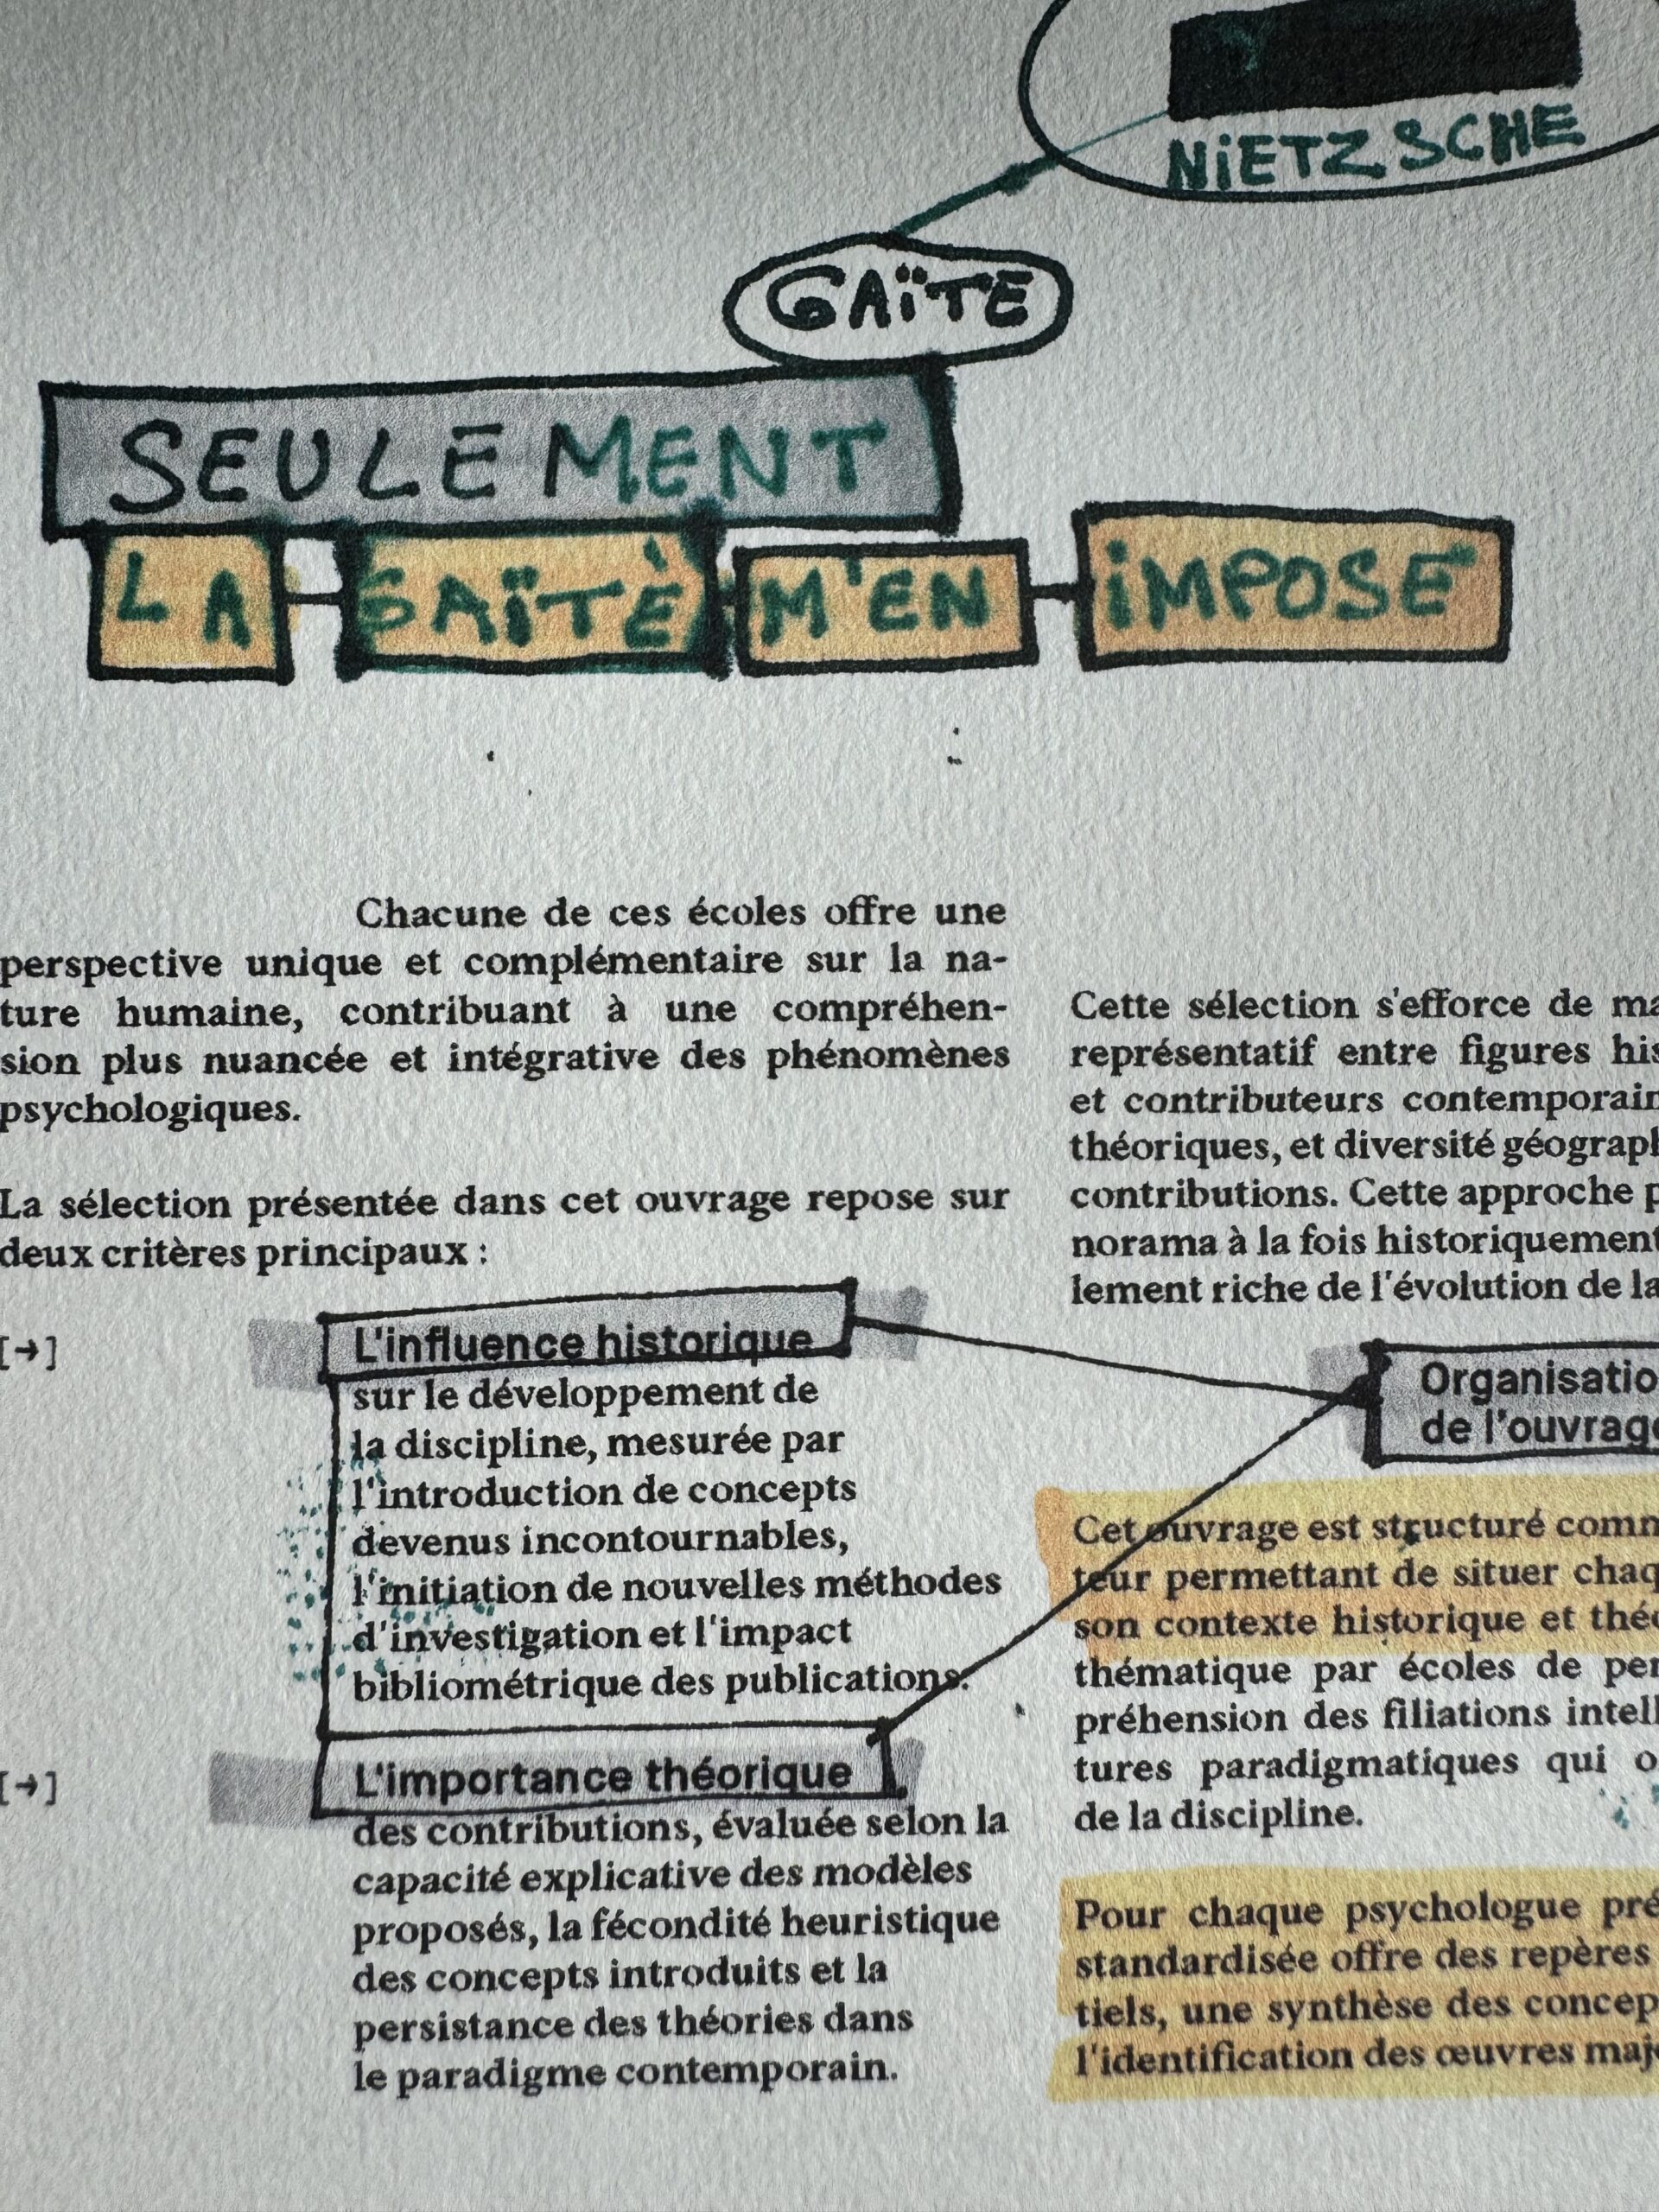 NiETZSCHE
GAÏTE
SEULEMENT
LA GAÏTÈ M'EN iMPOSE
Chacune de ces écoles offre une
perspective unique et complémentaire sur la na-
ture humaine, contribuant à une compréhen-
sion plus nuancée et intégrative des phénomènes
psychologiques.
La sélection présentée dans cet ouvrage repose sur
deux critères principaux :
[→] L'influence historique
sur le développement de
la discipline, mesurée par
l'introduction de concepts
devenus incontournables,
l'initiation de nouvelles méthodes
d'investigation et l'impact
bibliométrique des publications.
[→] L'importance théorique
des contributions, évaluée selon la
capacité explicative des modèles
proposés, la fécondité heuristique
des concepts introduits et la
persistance des théories dans
le paradigme contemporain.
Cette sélection s'efforce de ma
représentatif entre figures his
et contributeurs contemporain
théoriques, et diversité géograph
contributions. Cette approche p
norama à la fois historiquement
lement riche de l'évolution de la
Organisatio
de l'ouvrage
Cet ouvrage est structuré comm
teur permettant de situer chaq
son contexte historique et théo
thématique par écoles de pen
préhension des filiations intell
tures paradigmatiques qui o
de la discipline.
Pour chaque psychologue pré
standardisée offre des repères
tiels, une synthèse des concep
l'identification des œuvres maj